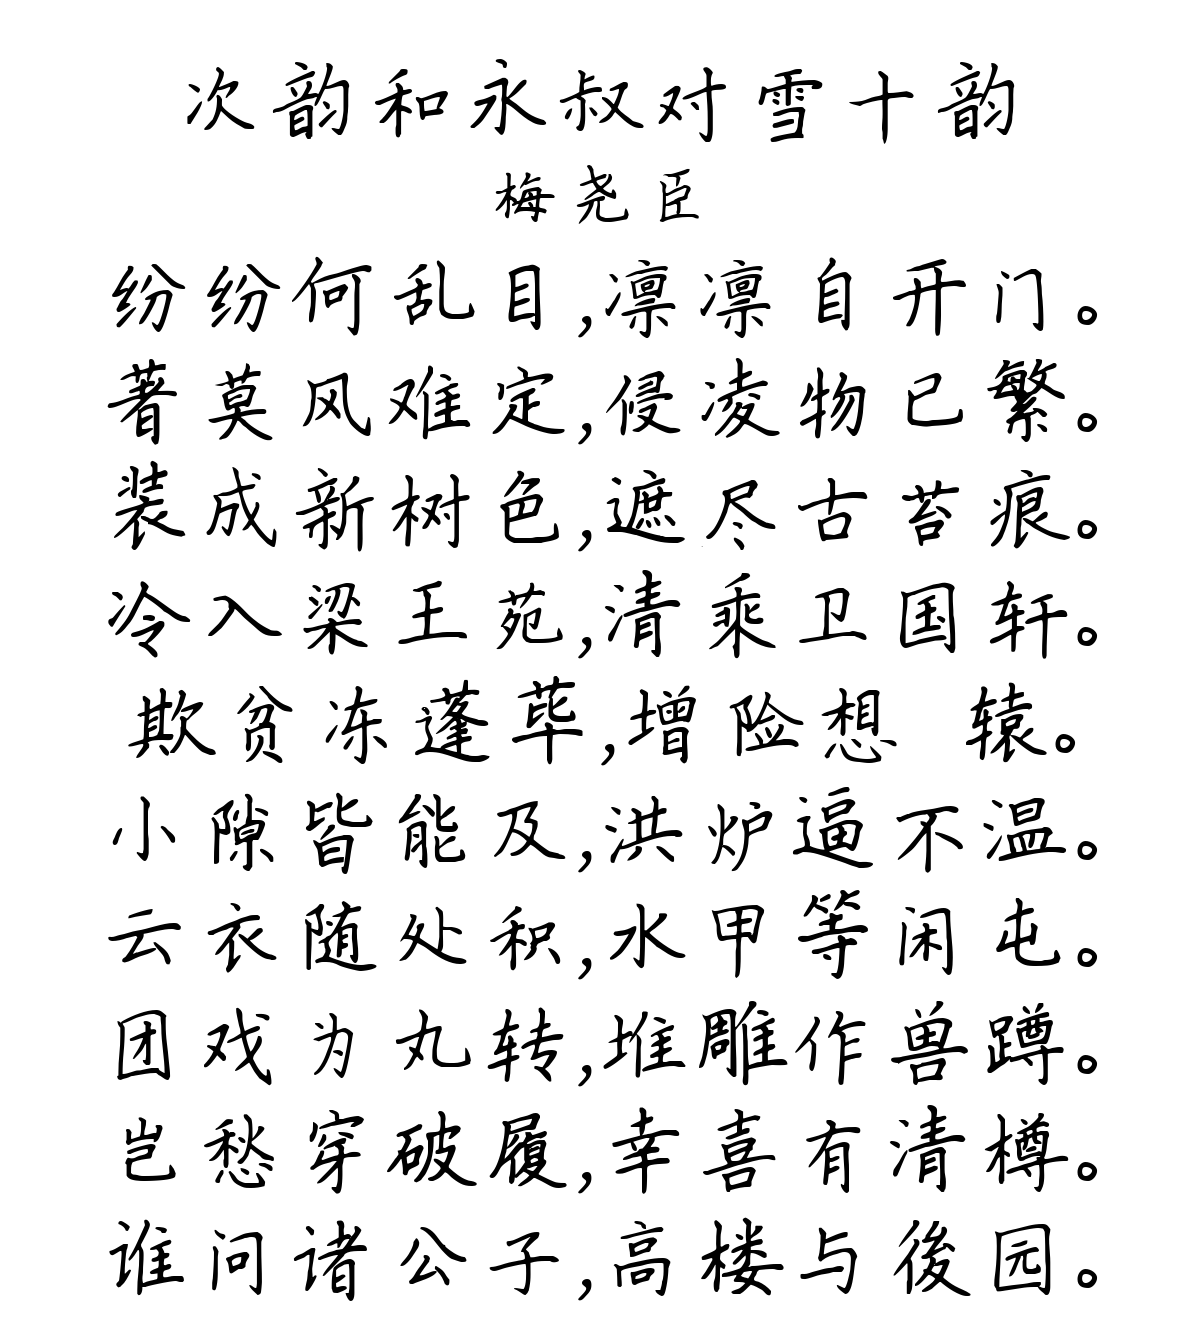 次韵和永叔对雪十韵
梅尧臣
纷纷何乱目,凛凛自开门。
著莫风难定,侵凌物已繁。
装成新树色,遮尽古苔痕。
冷入梁王苑,清乘卫国轩。
欺贫冻蓬荜,增险想 辕。
小隙皆能及,洪炉逼不温。
云衣随处积,水甲等闲屯。
团戏为丸转,堆雕作兽蹲。
岂愁穿破履,幸喜有清樽。
谁问诸公子,高楼与後园。